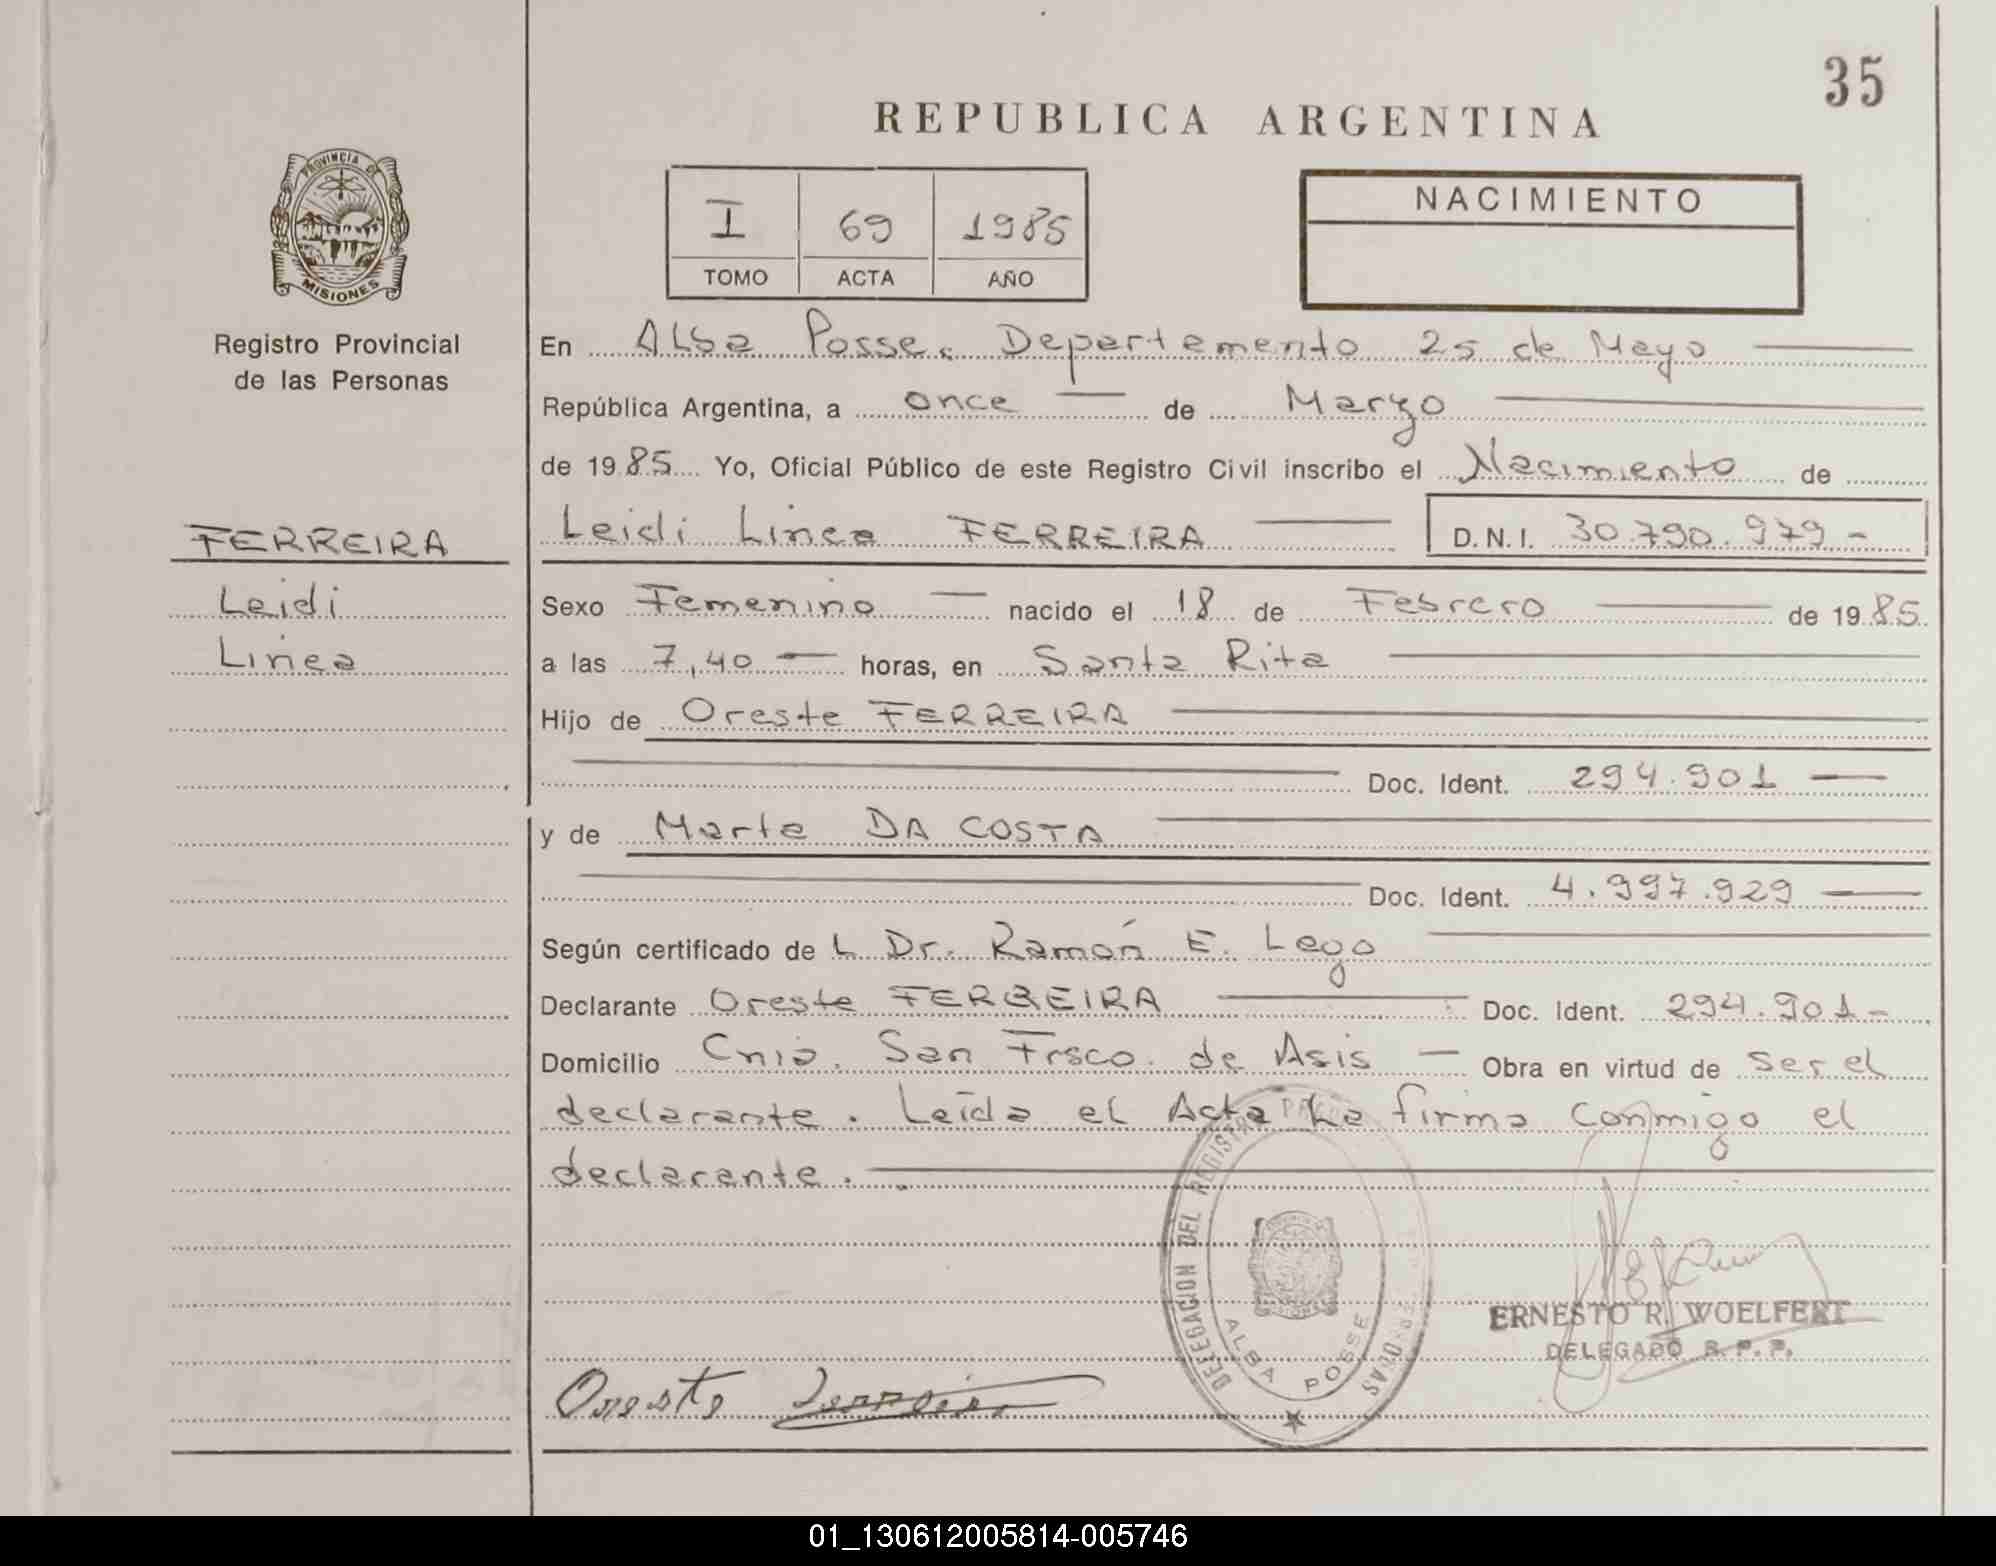 35
REPUBLICA ARGENTINA
PROVINCIA DE
MISIONES
I 69 1985
TOMO ACTA AÑO
NACIMIENTO
Registro Provincial
de las Personas
En Alba Posse, Departamento 25 de Mayo
República Argentina, a once de Marzo
de 1985 Yo, Oficial Público de este Registro Civil inscribo el Nacimiento de
FERREIRA
Leidi Linea FERREIRA D.N.I. 30.790.979-
Leidi
Sexo Femenino nacido el 18 de Febrero de 1985
Linea
a las 7,40 horas, en Santa Rita
Hijo de Oreste FERREIRA
Doc. Ident. 294.901
y de Marta DA COSTA
Doc. Ident. 4.997.929
Según certificado de L Dr. Ramón E. Lego
Declarante Oreste FERREIRA Doc. Ident. 294.901-
Domicilio Cnia. San Frsco. de Asis Obra en virtud de ser el
declarante. Leída el Acta la firma conmigo el
declarante.
DELEGACION DEL REGISTRO
ALBA POSSE
ERNESTO R. WOELFERT
DELEGADO R. P. P.
Oreste Ferreira
01_130612005814-005746